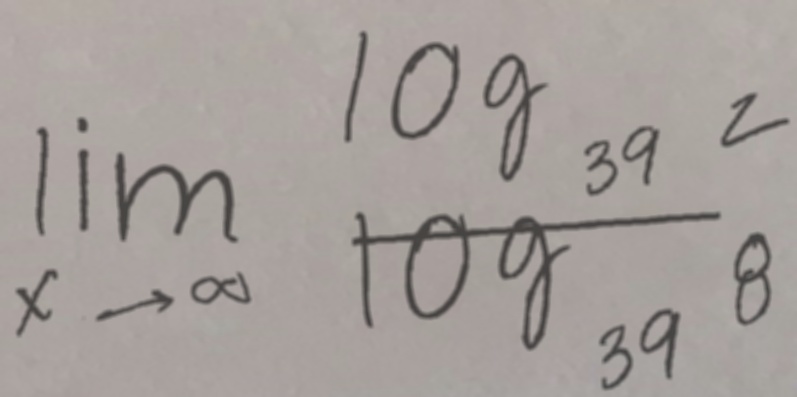 lim_{x \to \infty} \frac{\log_{39} 2}{\log_{39} 8}